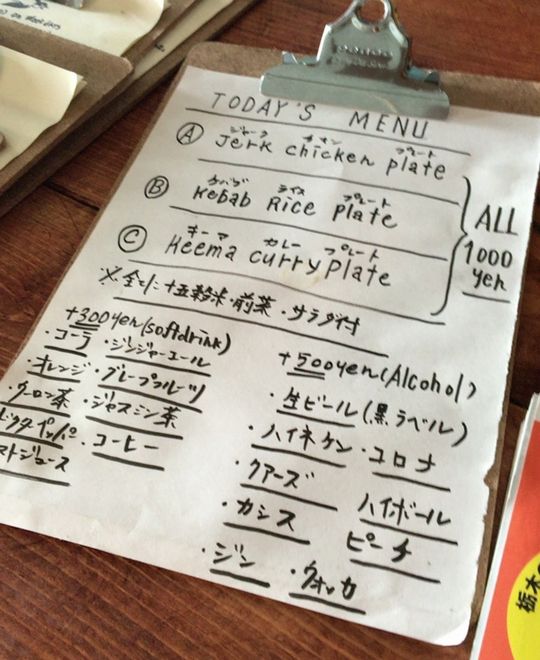 TODAY'S MENU
ジャーク チキン プレート
Ⓐ Jerk chicken plate
ケバブ ライス プレート
Ⓑ Kebab Rice plate
キーマ カレー プレート
Ⓒ Keema curry plate
ALL
1000
yen
※全てに十五穀米・前菜・サラダ付
+300yen(softdrink)
・コーラ ・ジンジャーエール
・オレンジ ・グレープフルーツ
・ウーロン茶 ・ジャスミン茶
ドクターペッパー ・コーヒー
+500yen(Alcohol)
・生ビール(黒ラベル)
・ハイネケン ・コロナ
・クアーズ ハイボール
・カシス ピーチ
・ジン ・ウォッカ
栃木の